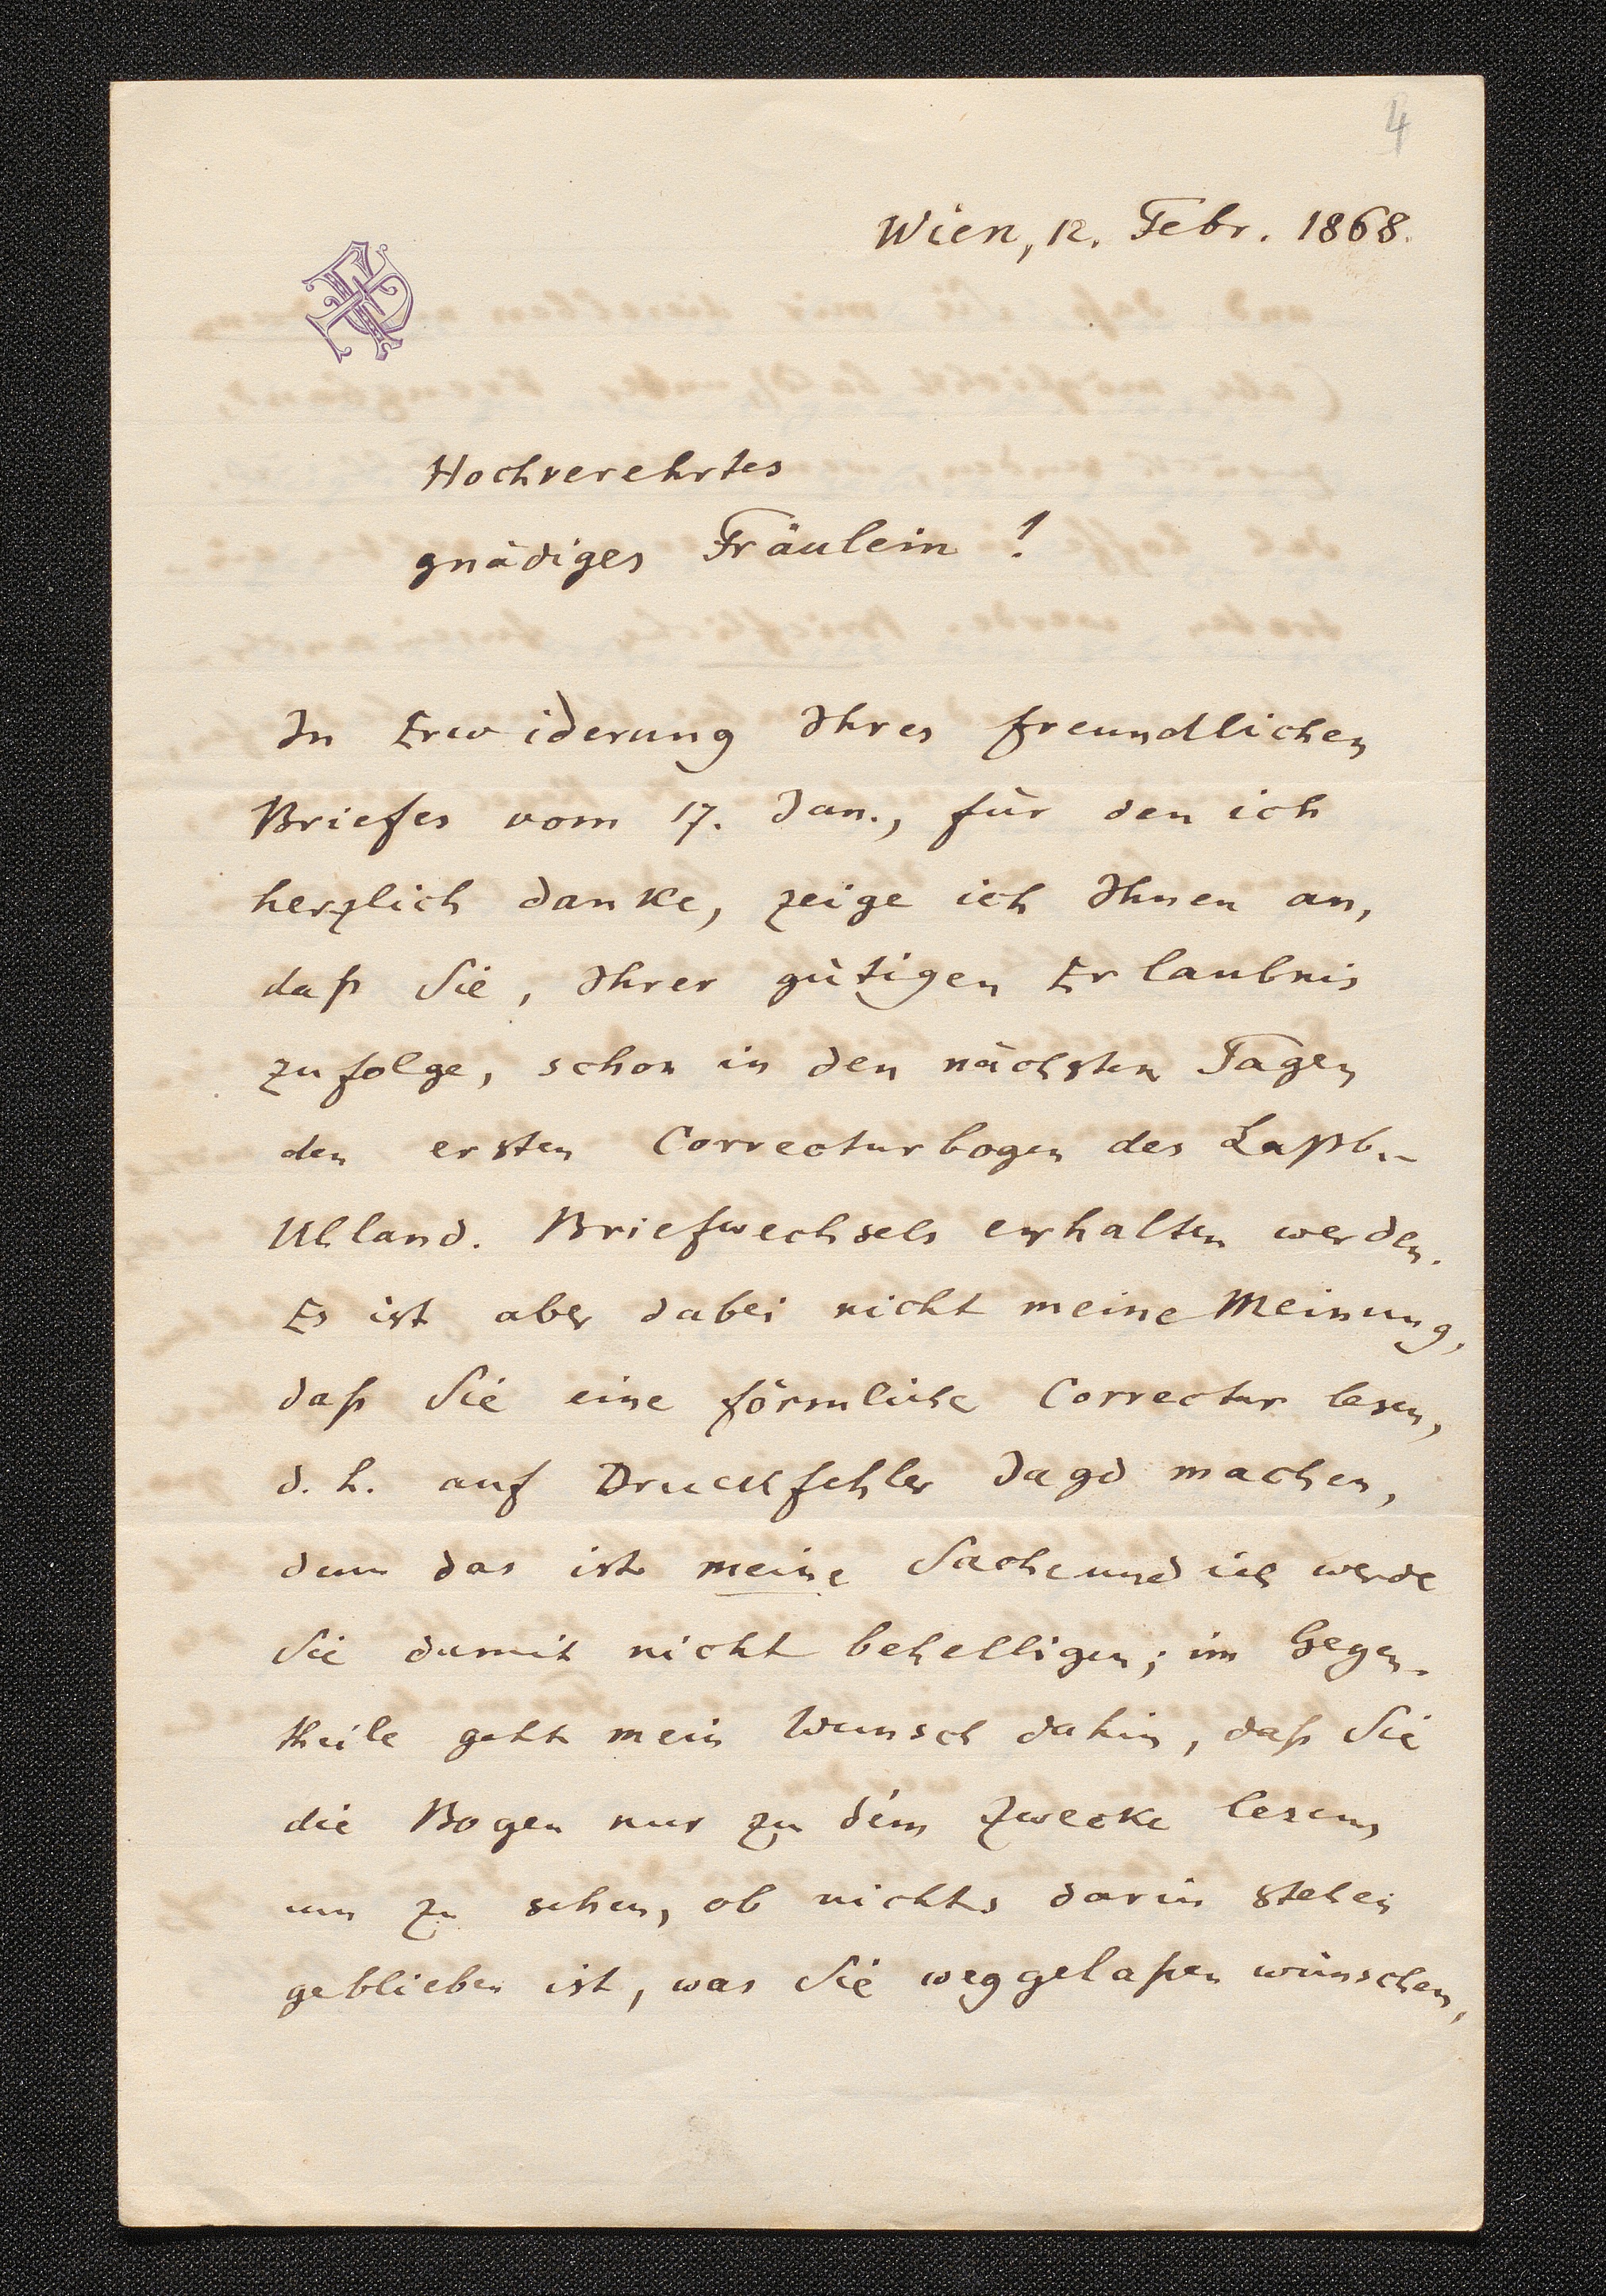 4
Wien, 12. Febr. 1868.
FP
Hochverehrtes
gnädiges Fräulein!
In Erwiderung Ihres freundlichen
Briefes vom 17. Jan., für den ich
herzlich danke, zeige ich Ihnen an,
daß Sie, Ihrer gütigen Erlaubnis
zufolge, schon in den nächsten Tagen
den ersten Correcturbogen des Laßb.-
Uhland. Briefwechsels erhalten werden.
Es ist aber dabei nicht meine Meinung,
daß Sie eine förmliche Correctur lesen,
d. h. auf Druckfehler Jagd machen,
denn das ist meine Sache und ich werde
Sie damit nicht behelligen; im Gegen-
theile geht mein Wunsch dahin, daß Sie
die Bogen nur zu dem Zwecke lesen,
um zu sehen, ob nichts darin stehen
geblieben ist, was Sie weggelaßen wünschen,